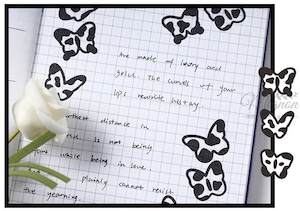 are made of ivory and
gold. The curves of your
lips rewrite history.
distance in
is not being
whole being in love.
plainly cannot resist
the yearning.